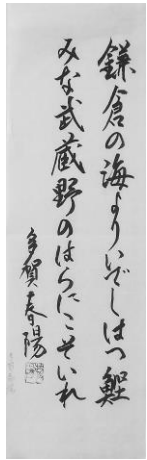 鎌倉の海よりいでしはつ鰹
みな武蔵野のはらにこそいれ
多賀春陽